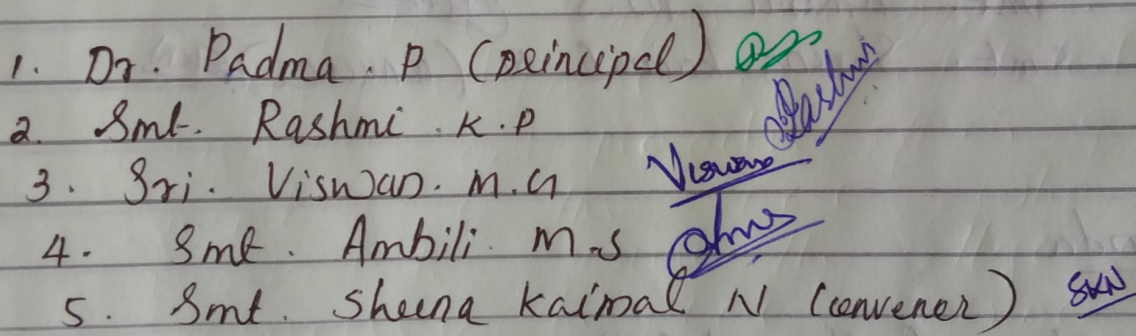 1. Dr. Padma. P (principal)
2. Smt. Rashmi. K. P Rashmi
3. Sri. Viswan. M. G Viswan
4. Smt. Ambili M.S
5. Smt. Sheena Kaimal N (convener) SKN